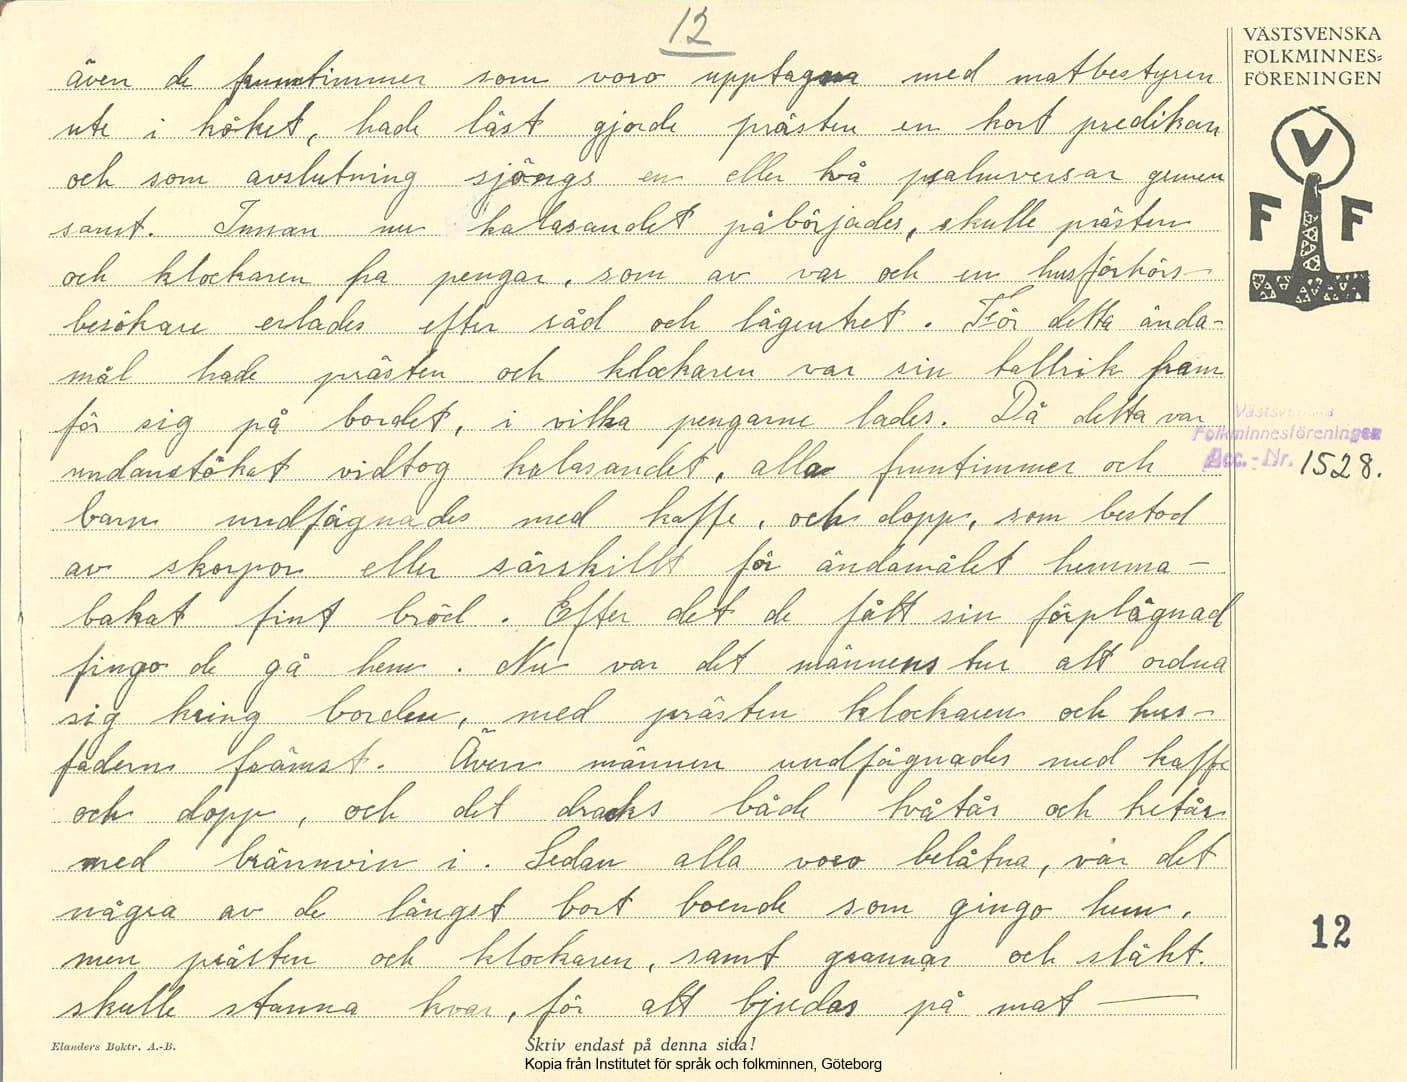 12
VÄSTSVENSKA
FOLKMINNES-
FÖRENINGEN
även de fruntimmer som voro upptagna med matbestyren
ute i köket, hade läst gjorde prästen en kort predikan
och som avslutning sjöngs en eller två psalmversar gemen
samt. Innan nu kalasandet påbörjades, skulle prästen
och klockaren fa pengar, som av var och en husförhörs-
besökare erlades efter råd och lägenhet. För detta ända-
mål hade prästen och klockaren var sin tallrik fram
för sig på bordet, i vilka pengarne lades. Då detta var
undanstökat vidtog kalasandet, alla fruntimmer och
barn undfägnades med kaffe, och dopp, som bestod
av skorpor eller särskillt för ändamålet hemma-
bakat fint bröd. Efter det de fått sin förplägnad
fingo de gå hem. Nu var det männens tur att ordna
sig kring borden, med prästen klockaren och hus-
fadern främst. Även männen undfägnades med kaffe
och dopp, och det dracks både tvåtår och tretår
med brännvin i. Sedan alla voro belåtna, var det
några av de längst bort boende som gingo hem,
men prästen och klockaren, samt grannar och släkt.
skulle stanna kvar, för att bjudas på mat —
V
F F
Västsvenska
Folkminnesföreningen
Acc.-Nr. 1528.
12
Elanders Boktr. A.-B.
Skriv endast på denna sida!
Kopia från Institutet för språk och folkminnen, Göteborg